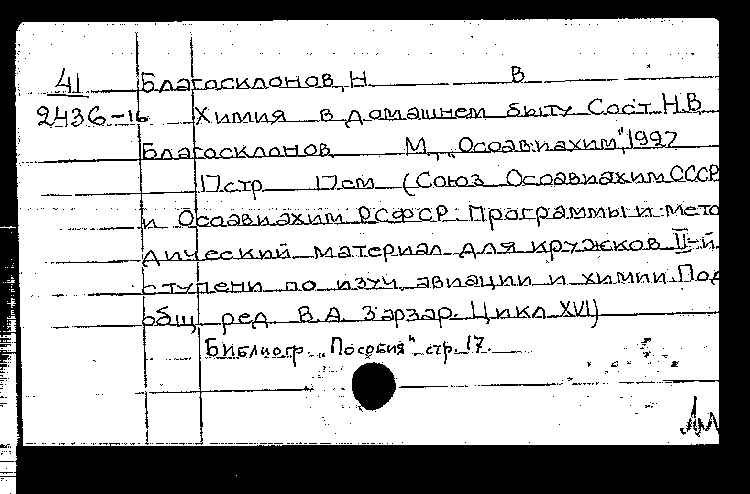 41 Благосклонов, Н. В
2436-16 Химия в домашнем быту Сост. Н.В.
Благосклонов М., „Осоавиахим", 1927
17стр 17см (Союз Осоавиахим СССР
и Осоавиахим РСФСР. Программы и мето
дический материал для кружков II-й
ступени по изуч. авиации и химии. Под
общ. ред. В.А. Зарзар. Цикл XVI)
Библиогр. „Пособия" стр. 17.